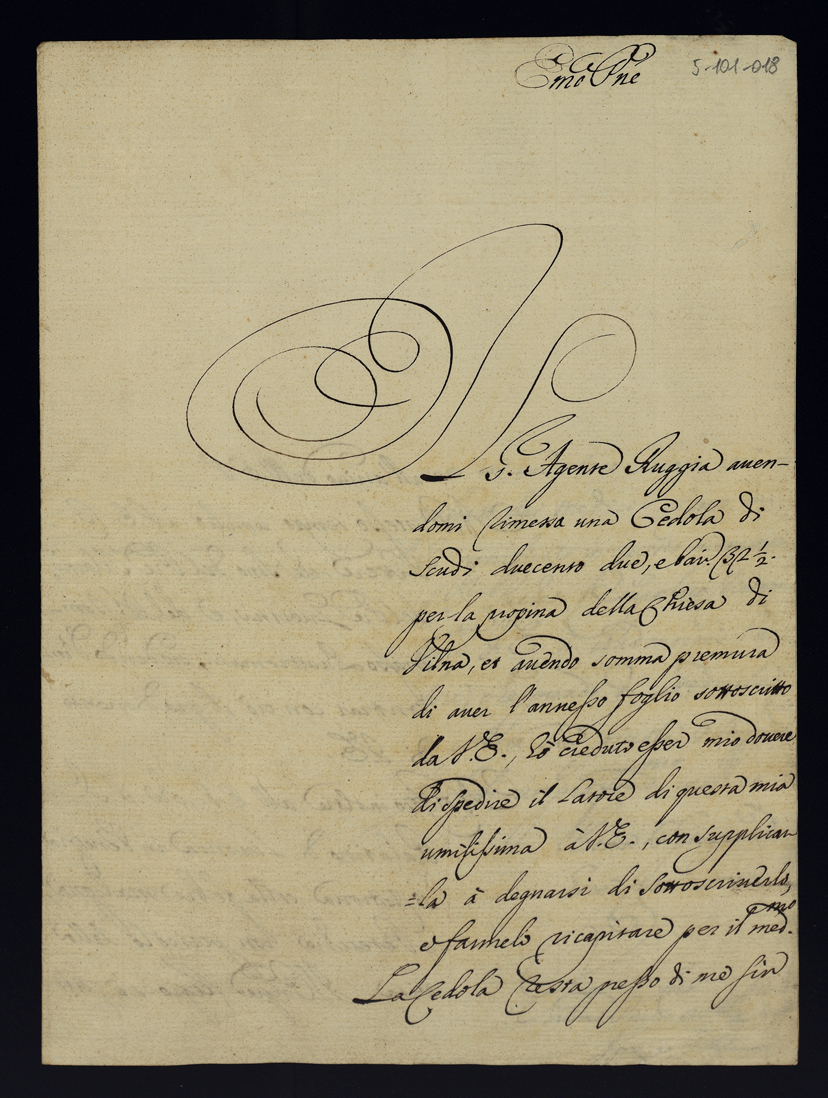 Emo Pñe
5-101-018
Il S. Agente Ruggia aven-
domi rimessa una Cedola di
scudi duecento due, e bai. 32½.
per la propina della Chiesa di
Vilna, et avendo somma premura
di aver l'annesso foglio sottoscritto
da V. E., hò creduto esser mio dovere
di spedire il Latore di questa mia
umilissima à V. E., con supplicar-
=la à degnarsi di sottoscriverlo,
e farmelo ricapitare per il med.mo
La Cedola resta presso di me sin